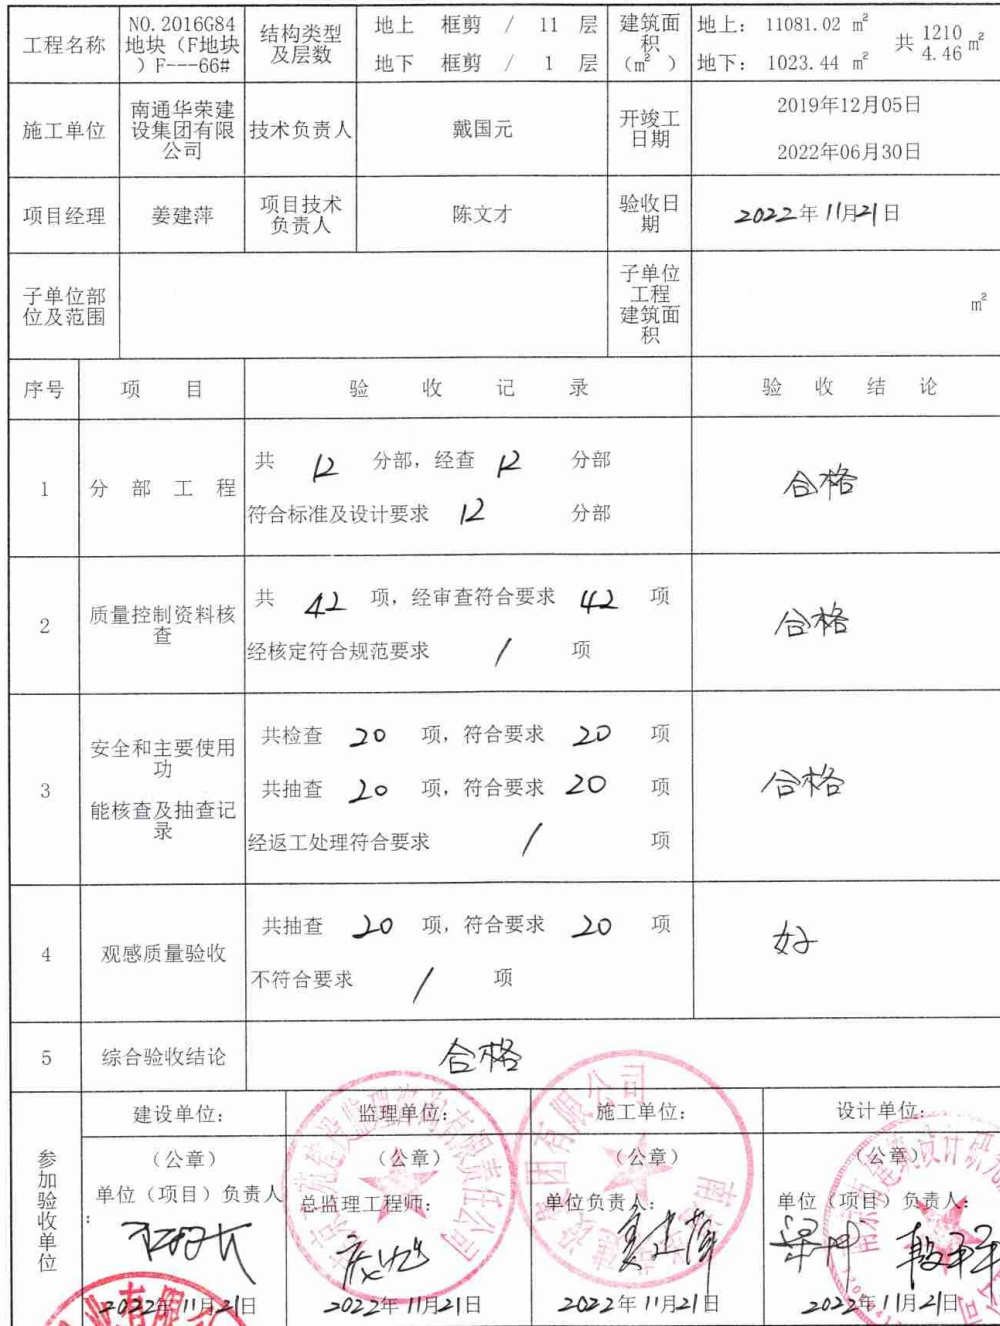 工程名称
NO.2016G84
地块（F地块
）F---66#
结构类型
及层数
地上 框剪 / 11 层
地下 框剪 / 1 层
建筑面
积
（m² ）
地上： 11081.02 m²
地下： 1023.44 m²
共 1210
4.46 m²
施工单位
南通华荣建
设集团有限
公司
技术负责人
戴国元
开竣工
日期
2019年12月05日
2022年06月30日
项目经理
姜建萍
项目技术
负责人
陈文才
验收日
期
2022年11月21日
子单位部
位及范围
子单位
工程
建筑面
积
m²
序号
项 目
验 收 记 录
验 收 结 论
1
分 部 工 程
共 12 分部，经查 12 分部
符合标准及设计要求 12 分部
合格
2
质量控制资料核
查
共 42 项，经审查符合要求 42 项
经核定符合规范要求 / 项
合格
3
安全和主要使用
功
能核查及抽查记
录
共检查 20 项，符合要求 20 项
共抽查 20 项，符合要求 20 项
经返工处理符合要求 / 项
合格
4
观感质量验收
共抽查 20 项，符合要求 20 项
不符合要求 / 项
好
5
综合验收结论
合格
参加验收单位
建设单位：
（公章）
单位（项目）负责人
：
2022年11月21日
监理单位：
（公章）
总监理工程师：
2022年11月21日
施工单位：
（公章）
单位负责人：
姜建萍
2022年11月21日
设计单位：
（公章）
单位（项目）负责人：
2022年11月21日